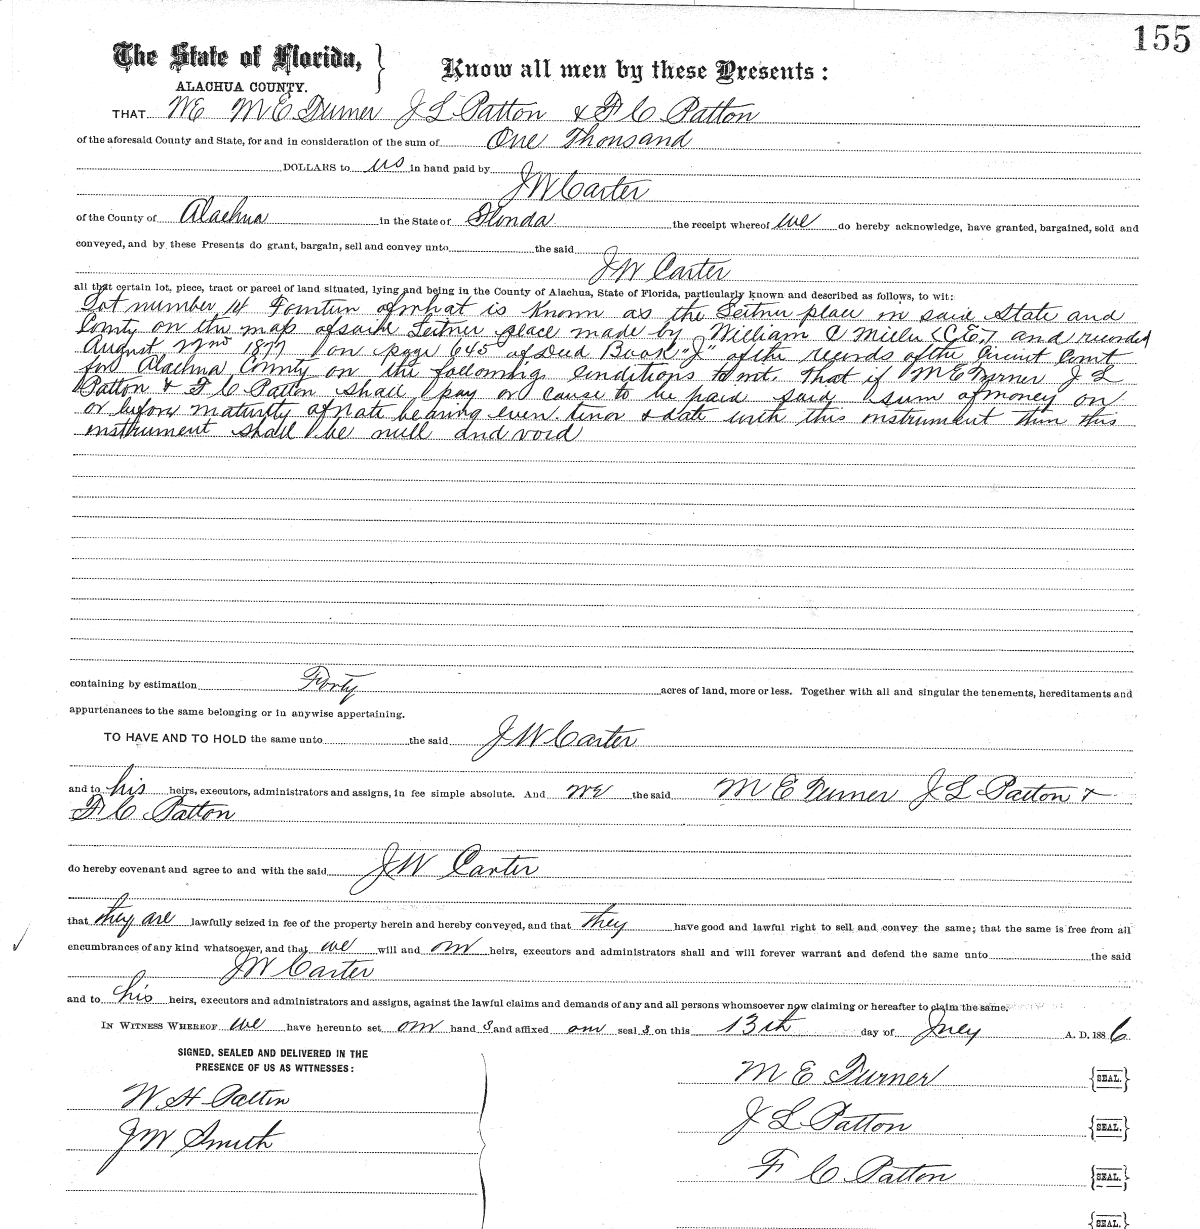 155
The State of Florida,
ALACHUA COUNTY.
Know all men by these Presents:
THAT We M E Turner J L Patton & F C Patton
of the aforesaid County and State, for and in consideration of the sum of One Thousand
DOLLARS to us in hand paid by
J W Carter
of the County of Alachua in the State of Florida the receipt whereof we do hereby acknowledge, have granted, bargained, sold and
conveyed, and by these Presents do grant, bargain, sell and convey unto the said
J W Carter
all that certain lot, piece, tract or parcel of land situated, lying and being in the County of Alachua, State of Florida, particularly known and described as follows, to wit:
Lot number 14 Fourteen of what is known as the Leitner place in said State and
County on the map of said Leitner place made by William C Miller (C.E.) and recorded
August 22nd 1877 on page 645 of Deed Book "J" of the records of the Circuit Court
for Alachua County on the following conditions to wit. That if M E Turner J L
Patton & F C Patton shall pay or cause to be paid said sum of money on
or before maturity of note bearing even tenor & date with this instrument then this
instrument shall be null and void
containing by estimation Forty acres of land, more or less. Together with all and singular the tenements, hereditaments and
appurtenances to the same belonging or in anywise appertaining.
TO HAVE AND TO HOLD the same unto the said J W Carter
and to his heirs, executors, administrators and assigns, in fee simple absolute. And we the said M E Turner J L Patton &
F C Patton
do hereby covenant and agree to and with the said J W Carter
that they are lawfully seized in fee of the property herein and hereby conveyed, and that they have good and lawful right to sell and convey the same; that the same is free from all
encumbrances of any kind whatsoever, and that we will and our heirs, executors and administrators shall and will forever warrant and defend the same unto the said
J W Carter
and to his heirs, executors and administrators and assigns, against the lawful claims and demands of any and all persons whomsoever now claiming or hereafter to claim the same.
IN WITNESS WHEREOF we have hereunto set our hand s and affixed our seal s on this 13th day of July A. D. 1886
SIGNED, SEALED AND DELIVERED IN THE
PRESENCE OF US AS WITNESSES:
M E Turner {SEAL.}
W H Patton
J L Patton {SEAL.}
J W Smith
F C Patton {SEAL.}
{SEAL.}